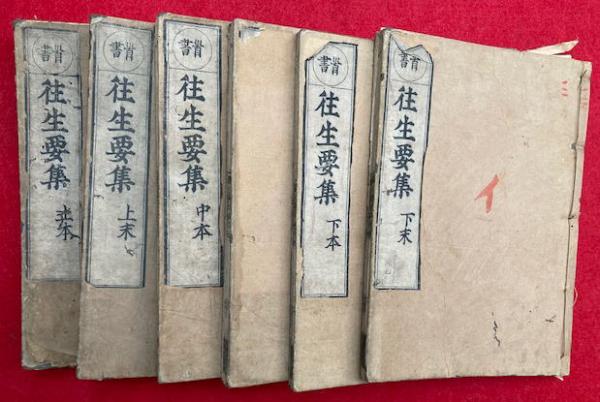 首書
往生要集
上本
首書
往生要集
上末
首書
往生要集
中本
首書
往生要集
下本
首書
往生要集
下末
イ